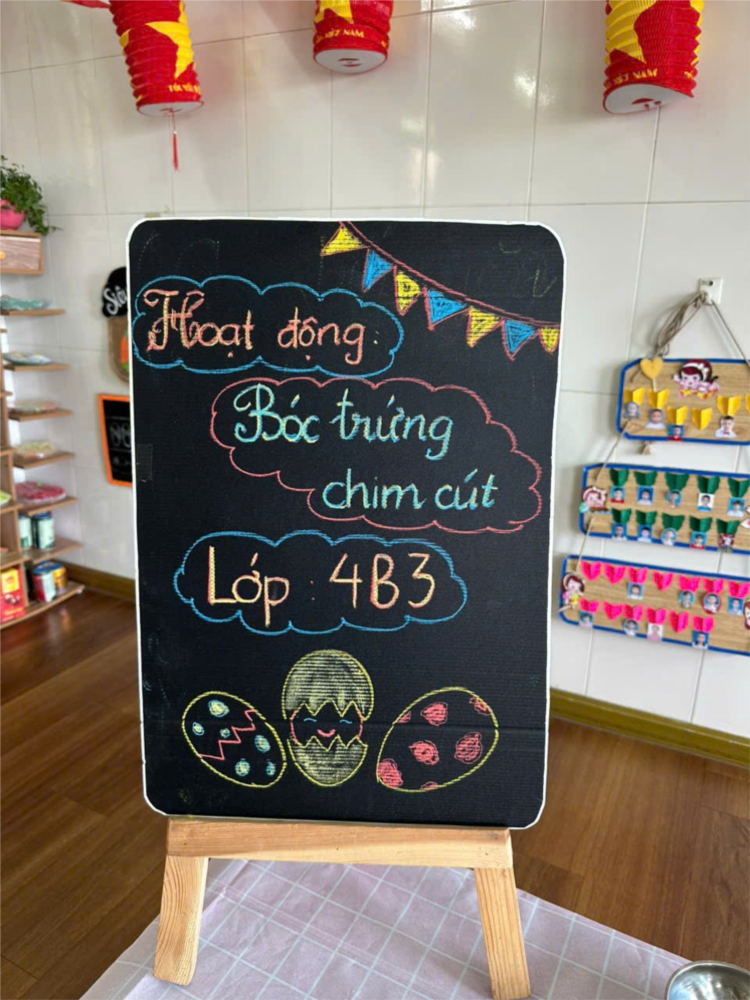 VIỆT NAM
VIỆT NAM
Hoạt động:
Bóc trứng
chim cút
Lớp: 4B3